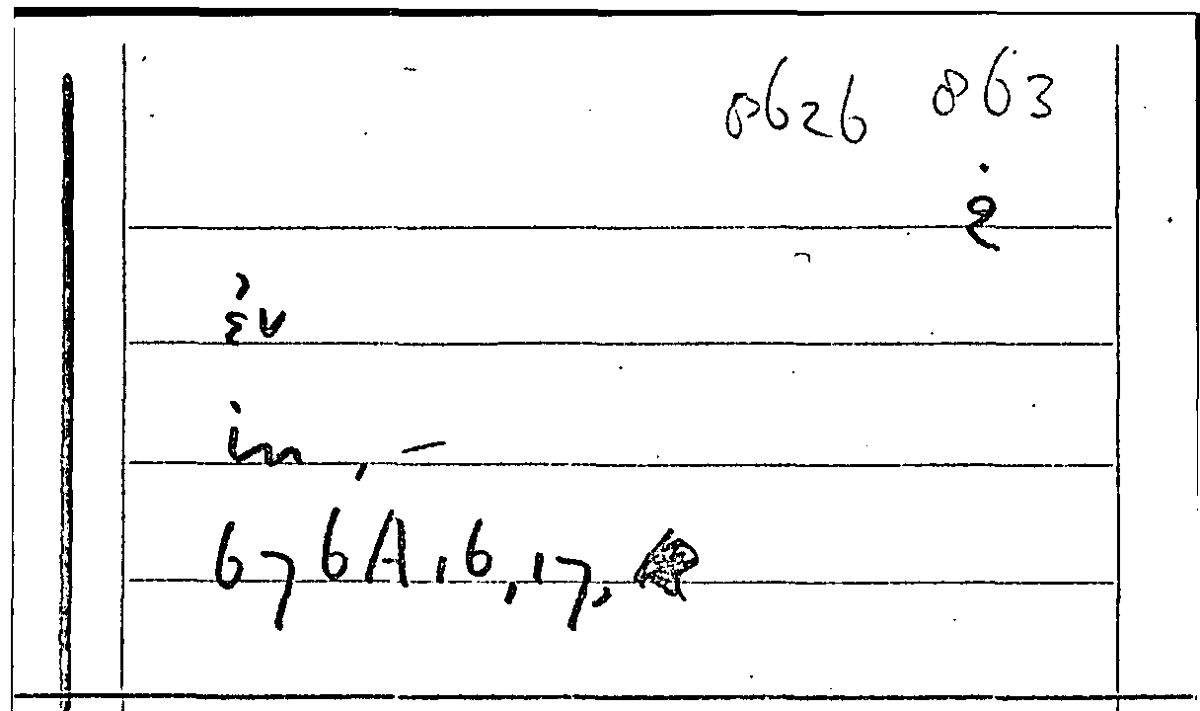 0626 063
2
ἐν
in, –
676A16,17,